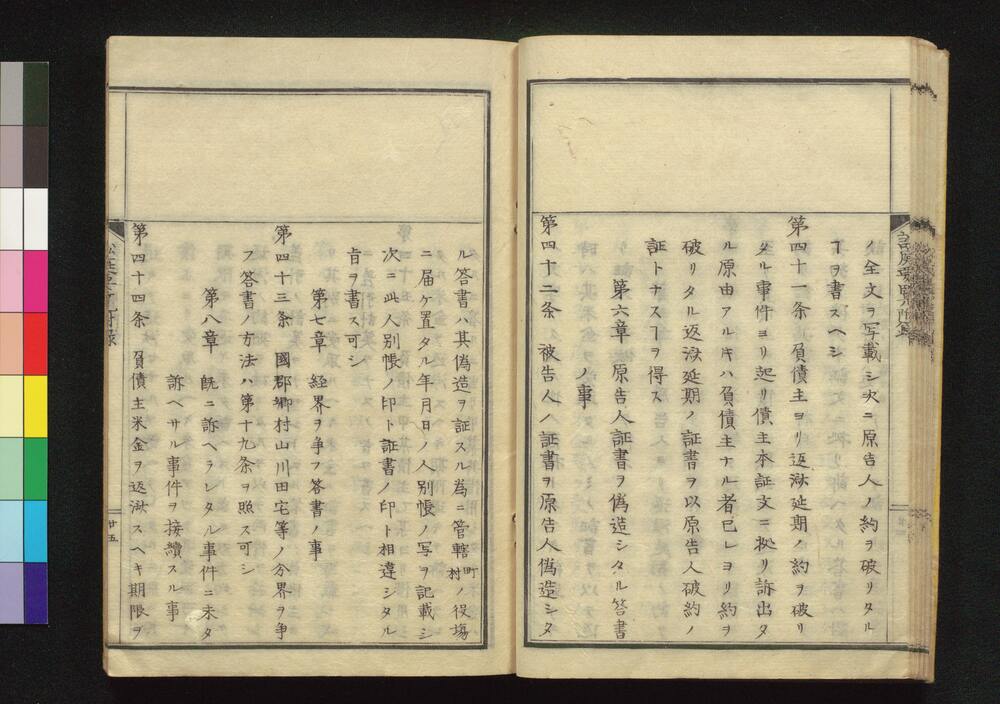 ノ全文ヲ写載シ次ニ原告人ノ約ヲ破リタル
ヿヲ書スヘシ
第四十一条 負債主ヨリ返済延期ノ約ヲ破リ
タル事件ヨリ起リ債主本証文ニ拠リ訴出タ
ル原由アルキハ負債主ナル者已レヨリ約ヲ
破リタル返済延期ノ証書ヲ以原告人破約ノ
証トナスヿヲ得ス
第六章 原告人証書ヲ偽造シタル答書
ノ事
第四十二条 被告人ノ証書ヲ原告人偽造シタ
ル答書ハ其偽造ヲ証スル為ニ管轄町村ノ役場
ニ届ケ置タル年月日ノ人別帳ノ写ヲ記載シ
次ニ此人別帳ノ印ト証書ノ印ト相違シタル
旨ヲ書ス可シ
第七章 経界ヲ争フ答書ノ事
第四十三条 國郡郷村山川田宅等ノ分界ヲ争
フ答書ノ方法ハ第十九条ヲ照ス可シ
第八章 既ニ訴ヘラレタル事件ニ未タ
訴ヘサル事件ヲ接續スル事
第四十四条 負債主米金ヲ返済スヘキ期限ヲ
廿五